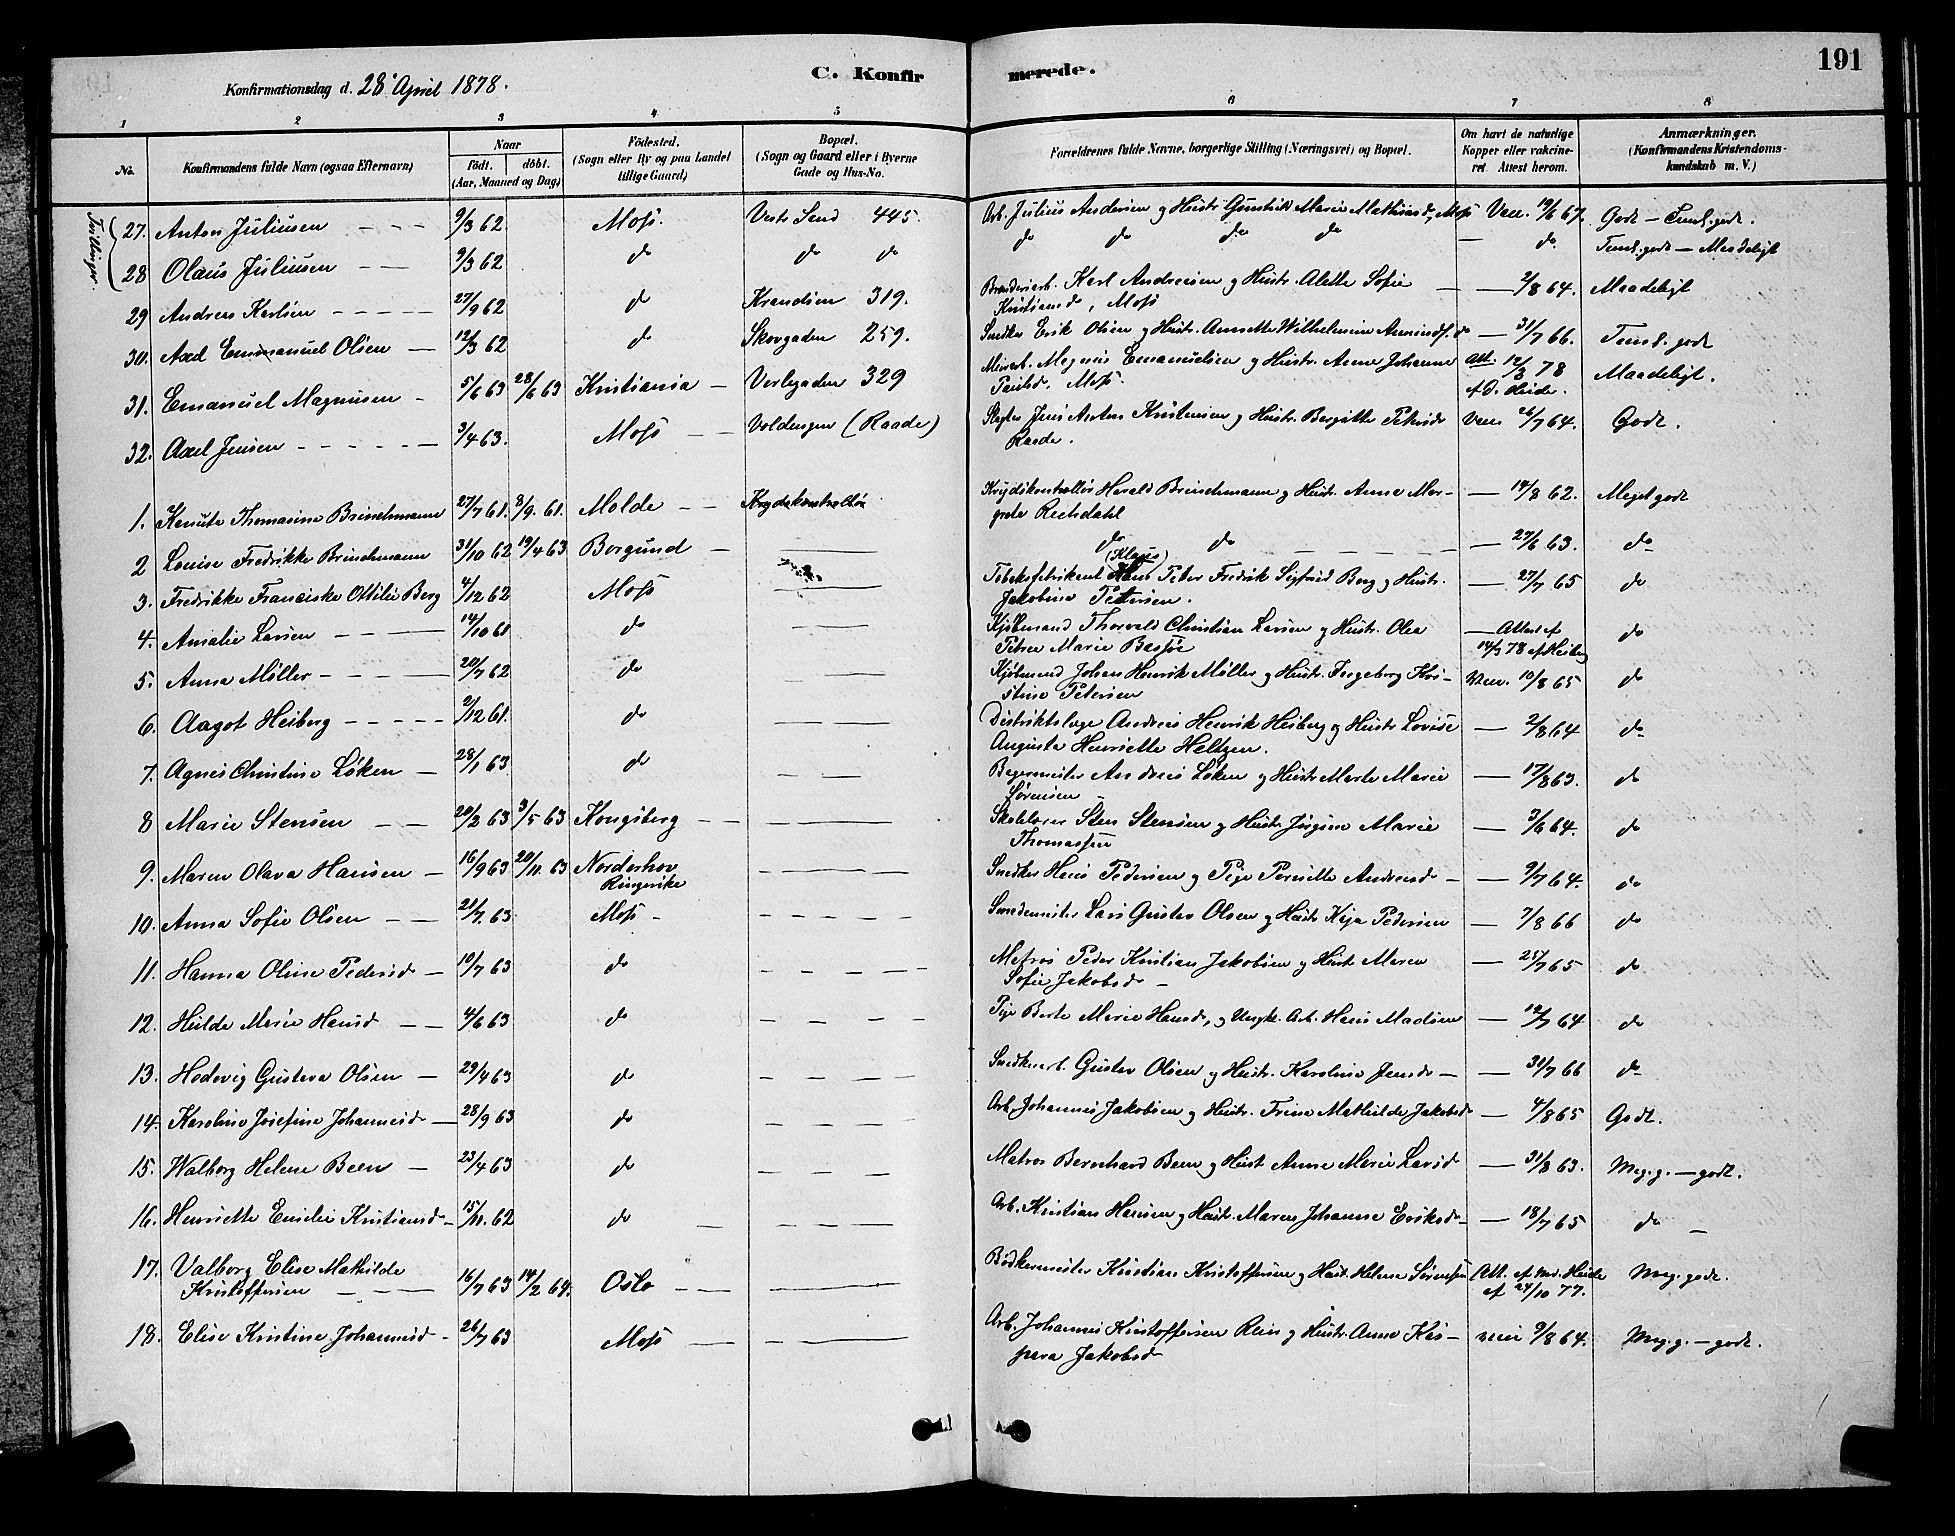 Konfirmationsdag d. 28 April 1878.
C. Konfirmerede.
191
1 2 3 4 5 6 7 8
No. Konfirmandens fulde Navn (ogsaa Efternavn) Naar født. døbt. (Aar, Maaned og Dag) Fødested. (Sogn eller By og paa Landet tillige Gaard) Bopæl. (Sogn og Gaard eller i Byerne Gade og Hus-No. Forældrenes fulde Navne, borgerlige Stilling (Næringsvei) og Bopæl. Om havt de naturlige Kopper eller vakcineret Attest herom. Anmærkninger. (Konfirmandens Kristendomskundskab m. V.)
Tvillinger
27. Anton Juliusen 9/3 62 Moss. Vestr Sund 445. Arb. Julius Andersen og Hustr. Marie Mathiasd, Moss Vacc. 19/6 67. Godt – Temd. godt.
28 Olaus Juliusen 9/3 62 do do do do do do do do Temd. godt – Maadeligt
29 Andreas Karlsen 27/9 62 do 319. Karl Andreasen og Hustr. Alette Sofie Kristiansd, Moss 2/8 64. Maadeligt
30. Axel Emmanuel Olsen 12/3 62 do Skovgaden 259. Snedker Erik Olsen og Hustr. Annette Wilhelmine 31/7 66. Temd. godt
31. Emanuel Magnusen 5/6 63 28/6 63 Kristiania Verlegaden 329 Magnus Emanuelsen og Hustr. Anne Johanne Paulsd, Moss. Att. 12/3 78 af D. Heide. Maadeligt.
32. Axel Jensen 3/4 63. Moss Voldengen (Raade) Slagter Jens Anton Kristensen og Hustr. Bergitte Petersd Raade. Vacc 26/7 64. Godt.
1. Kenute Thomasine Brinchmann 27/7 61. 8/9. 61. Molde Krydskontrollør Krydskontrollør Harald Brinchmann og Hustr. Anna Margrete Reehsdahl 14/8 62. Meget godt
2 Louise Fredrikke Brinchmann 31/10 62 19/4 63 Borgund do do 27/6 63. do
3. Fredrikke Franciske Ottilie Berg 4/12 62 Moss Tobaksfabrikant (Klaus) Peter Fredrik Sigfried Berg og Hustr. Jakobine Pettersen. 27/7 65 do
4. Amalie Larsen 14/10 61 do Kjøbmand Thorvald Christian Larsen og Hustr. Olea Petrea Marie Bassøe Attest af 14/3 78 af Heiberg do
5. Anna Møller 20/7 62 do Kjøbmand Johan Henrik Møller og Hustr. Ingeborg Kristine Petersen Vacc. 10/8 65 do
6. Aagot Heiberg 2/12 61. do Distriktslæge Andreas Henrik Heiberg og Hustr Lovise Augusta Henriette Heltzen. 2/8 64 do
7. Agnes Christine Løken 28/1 63 do Bagermester Andreas Løken og Hustr Marte Marie Sørensen 17/8 63. do
8 Marie Stensen 20/2 63 3/5 63 Kongsberg Skolelærer Sten Stensen og Hustr Jørgine Marie Thomassen 3/6 64. do
9. Maren Olava Hansen 16/9 63 20/11. 63 Norderhov Ringerike Snedker Hans Pedersen og Pige Pernille Andreasd 9/7 64. do
10. Anna Sofie Olsen 21/7. 63 Moss Lars Gustav Olsen og Hustr Kaja Pedersen 7/8 66 do
11. Hanna Oline Pedersd 10/7 63 do Matros Peder Kristian Jakobsen og Hustr Maren Sofie Jakobsd 25/7 65 do
12. Hulda Marie Hansd 4/6 63 do Pige Berte Marie Hansd, og Ungk. Arb. Hans Madsen 12/7 64 do
13. Hedevig Gustava Olsen 29/4 63 do Snedkerarb. Gustav Olsen og Hustr. Karoline Jensd 31/7 66 do
14. Karoline Josefine Johannesd 28/9 63 do Arb. Johannes Jakobsen og Hustr. Trine Mathilde Jakobsd 4/8 65 Godt.
15. Walborg Helene Been 23/4 63 do Matros Bernhard Been og Hustr Anne Marie Larsd 31/8 63. Meg. g. – godt.
16. Henriette Emilie Kristiansd 15/11. 62 do Arb. Kristian Hansen og Hustr. Maren Johanne Eriksd 18/7 65 do
17. Valborg Elise Mathilde Kristoffersen 16/7 63 14/2 64. Oslo Bødkermester Kristian Kristoffersen og Hustr. Helene Sørensen Att. af Md. Heide af 24/10 77. Meg. godt.
18. Elise Kristine Johannesd 26/7 63 Moss Arb. Johannes Kristoffersen Rein og Hustr. Anne Kaspara Jakobsd 9/8 64. Meg. g. – godt.